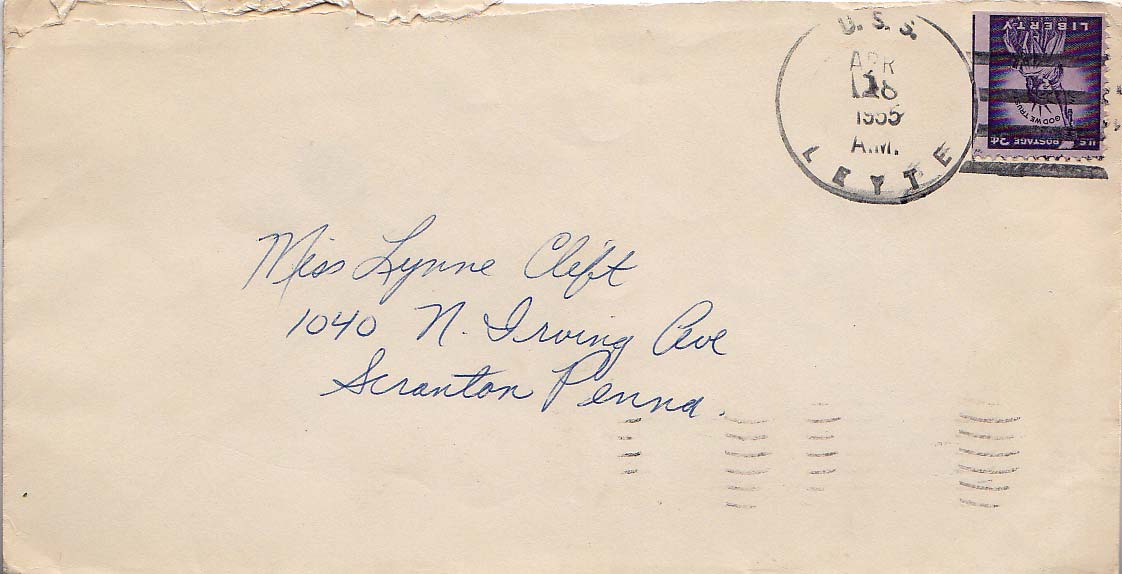 U.S.S.
APR
18
1955
A.M.
LEYTE
LIBERTY
IN GOD WE TRUST
U.S. POSTAGE 3¢
Miss Lynne Clift
1040 N. Irving Ave
Scranton Penna.